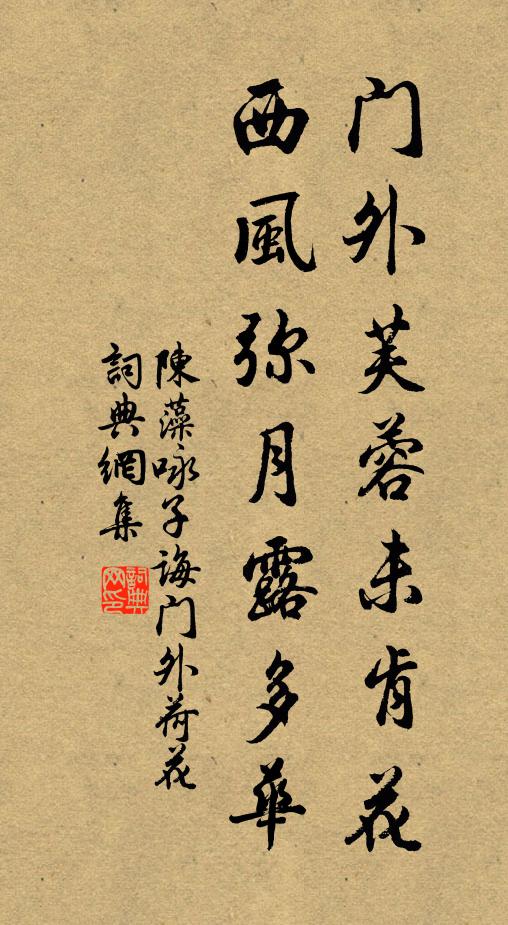 门外芙蓉未肯花
西風弥月露多華
陳藻咏子誨门外荷花
詞典網集
詞典网印